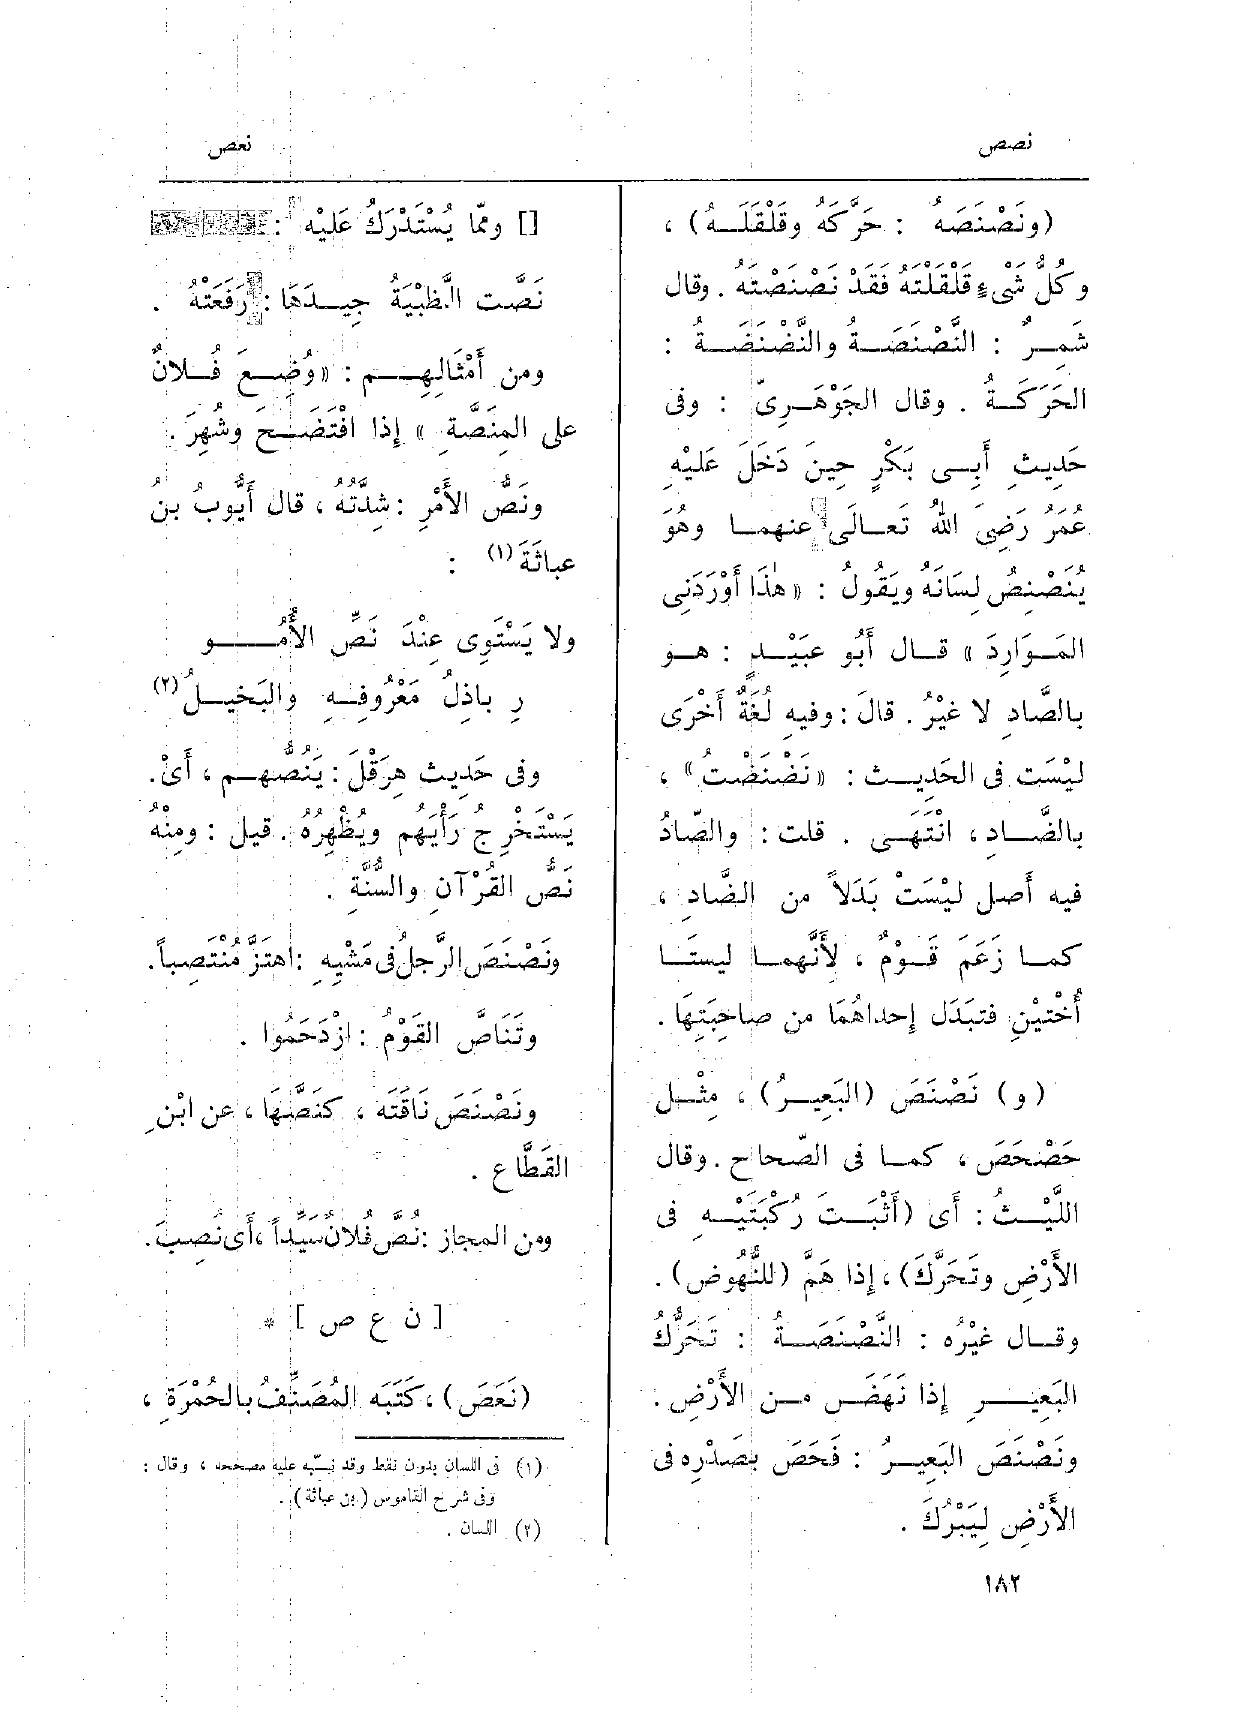 نصص
نعص
(ونَصْنَصَهُ : حَرَّكَهُ وقَلْقَلَـهُ) ،
وكُلُّ شَىْءٍ قَلْقَلْتَهُ فقَدْ نَصْنَصْتَه . وقال
شَمِـرٌ : النَّصْنَصَـةُ والنَّضْنَضَـةُ :
الحَرَكَـةُ . وقال الجَوْهَـرِىّ : وفى
حَدِيثِ أَبِـى بَكْرٍ حِينَ دَخَلَ عَلَيْهِ
عُمَرُ رَضِىَ اللهُ تَعـالَى عنهمـا وهُوَ
يُنَصْنِصُ لِسَانَهُ ويَقُولُ : «هٰذَا أَوْرَدَنِى
المَـوَارِدَ » قـال أَبُو عبَيْـدٍ : هـو
بالصَّادِ لا غيْرُ . قالَ : وفيهِ لُغَةٌ أُخْرَى
ليْسَت فى الحَدِيـث : «نَضْنَضْتُ» ،
بالضَّـادِ، انْتَهَـى . قلت : والصّادُ
فيه أَصل ليْسَتْ بَدَلاً من الضَّادِ ،
كمـا زَعَمَ قَـوْمٌ ، لأَنَّهمـا ليستَـا
أُخْتَيْنِ فتبَدَل إِحداهُمَا من صاحِبَتِهَا .
(و) نَصْنَصَ (البَعِيـرُ) ، مِثْـل
حَصْحَصَ ، كمـا فى الصّحاح . وقال
اللَّيْـثُ : أَى (أَثْبَـتَ رُكْبَتَيْـهِ فى
الأَرْضِ وتَحَرَّكَ) ، إِذا هَمَّ (للنُّهُوض) .
وقـال غيْرُه : النَّصْنَصَـةُ : تَحَرُّكُ
البَعِيـرِ إِذا نَهَضَ مـن الأَرْضِ .
ونَصْنَصَ البَعِيـرُ : فَحَصَ بصَدْرِه فى
الأَرْضِ لِيَبْرُكَ .
[] وممّا يُسْتَدْرَكُ عَلَيْه :
نَصَّت الظَّبْيَةُ جِيـدَهَا : رَفَعَتْهُ .
ومن أَمْثَالِهِـم : «وُضِـعَ فُـلانٌ
على المِنَصَّةِ » إِذا افْتَضَـحَ وشُهِرَ .
ونَصُّ الأَمْرِ : شِدَّتُهُ ، قال أَيُّوبُ بن
عباثَةَ (١) :
ولا يَسْتَوِى عِنْدَ نَصِّ الأُمُـو
رِ باذِلُ مَعْرُوفِـهِ والبَخيـلُ (٢)
وفى حَدِيث هِرَقْل : يَنُصُّهـم ، أَىْ .
يَسْتَخْرِجُ رَأْيَهُم ويُظْهِرُهُ . قيل : ومِنْهُ
نَصُّ القُرْآنِ والسُّنَّةِ .
ونَصْنَصَ الرَّجلُ فى مَشْيِهِ : اهتَزَّ مُنْتَصِباً .
وتَنَاصَّ القَوْمُ : ازْدَحَمُوا .
ونَصْنَصَ نَاقَتَه ، كنَصَّهَا ، عن ابْنِ
القَطَّاع .
ومن المجاز : نُصَّ فُلانٌ سَيِّداً ، أَى نُصِبَ .
[ ن ع ص ] *
(نَعَصَ) ، كَتَبَه المُصَنِّفُ بالحُمْرَةِ ،
(١) فى اللسان بدون نقط وقد نبّه عليه مصححه ، وقال :
وفى شرح القاموس (بن عباثة) .
(٢) اللسان .
١٨٢